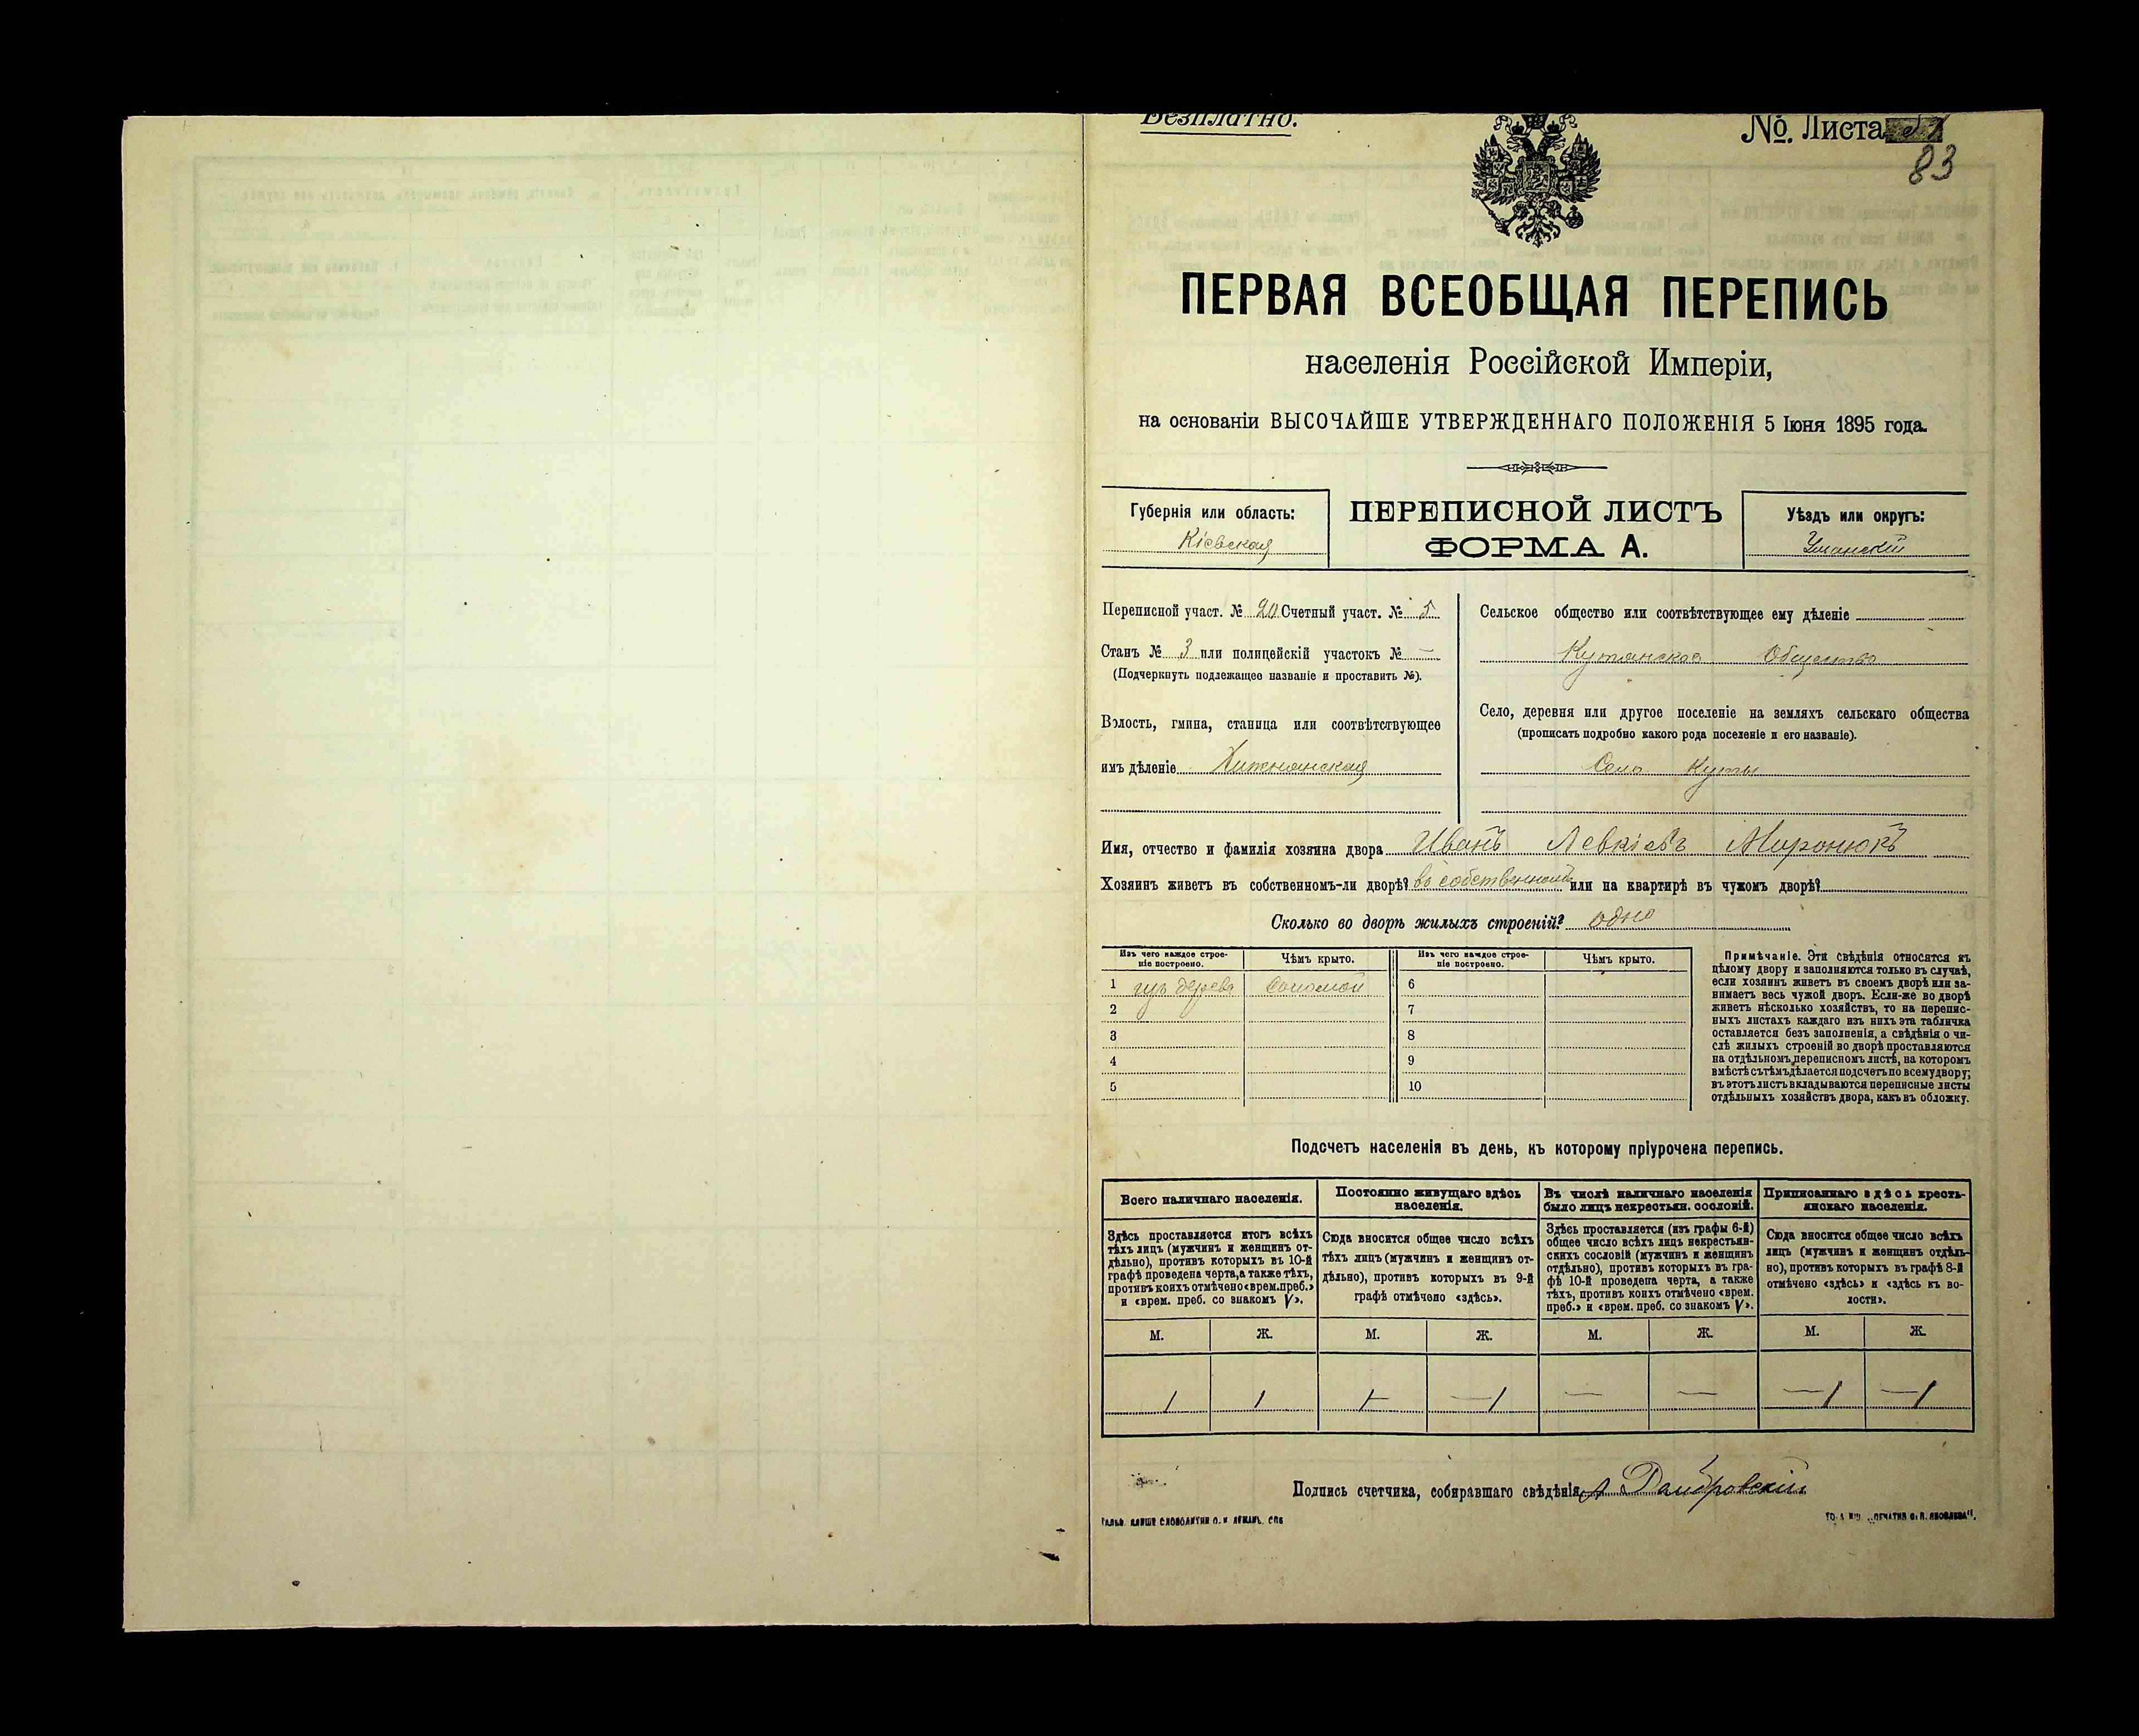 Безплатно.
№. Листа
83
ПЕРВАЯ ВСЕОБЩАЯ ПЕРЕПИСЬ
населенія Россійской Имперіи,
на основаніи ВЫСОЧАЙШЕ УТВЕРЖДЕННАГО ПОЛОЖЕНІЯ 5 Іюня 1895 года.
Губернія или область:
Кіевская
ПЕРЕПИСНОЙ ЛИСТЪ
ФОРМА А.
Уѣздъ или округъ:
Уманскій
Переписной участ. № 20 Счетный участ. № 5
Станъ № 3 или полицейскій участокъ № —
(Подчеркнуть подлежащее названіе и проставить №).
Волость, гмина, станица или соотвѣтствующее
имъ дѣленіе Хижнянская
Сельское общество или соотвѣтствующее ему дѣленіе
Кутянское Общество
Село, деревня или другое поселеніе на земляхъ сельскаго общества
(прописать подробно какого рода поселеніе и его названіе).
Село Куты
Имя, отчество и фамилія хозяина двора Иванъ Левкіевъ Миронюкъ
Хозяинъ живетъ въ собственномъ-ли дворѣ? въ собственномъ или на квартирѣ въ чужомъ дворѣ?
Сколько во дворѣ жилыхъ строеній? одно
Изъ чего каждое строе-
ніе построено.
Чѣмъ крыто.
Изъ чего каждое строе-
ніе построено.
Чѣмъ крыто.
1 изъ дерева Соломой 6
2 7
3 8
4 9
5 10
Примѣчаніе. Эти свѣдѣнія относятся къ
цѣлому двору и заполняются только въ случаѣ,
если хозяинъ живетъ въ своемъ дворѣ или за-
нимаетъ весь чужой дворъ. Если-же во дворѣ
живетъ нѣсколько хозяйствъ, то на перепис-
ныхъ листахъ каждаго изъ нихъ эта табличка
оставляется безъ заполненія, а свѣдѣнія о чи-
слѣ жилыхъ строеній во дворѣ проставляются
на отдѣльномъ переписномъ листѣ, на которомъ
вмѣстѣ съ тѣмъ дѣлается подсчетъ по всему двору;
въ этотъ листъ вкладываются переписные листы
отдѣльныхъ хозяйствъ двора, какъ въ обложку.
Подсчетъ населенія въ день, къ которому пріурочена перепись.
Всего наличнаго населенія.
Здѣсь проставляется итогъ всѣхъ
тѣхъ лицъ (мужчинъ и женщинъ от-
дѣльно), противъ которыхъ въ 10-й
графѣ проведена черта, а также тѣхъ,
противъ коихъ отмѣчено «врем. преб.»
и «врем. преб. со знакомъ V».
Постоянно живущаго здѣсь
населенія.
Сюда вносится общее число всѣхъ
тѣхъ лицъ (мужчинъ и женщинъ от-
дѣльно), противъ которыхъ въ 9-й
графѣ отмѣчено «здѣсь».
Въ числѣ наличнаго населенія
было лицъ некрестьян. сословій.
Здѣсь проставляется (изъ графы 6-й)
общее число всѣхъ лицъ некрестьян-
скихъ сословій (мужчинъ и женщинъ
отдѣльно), противъ которыхъ въ гра-
фѣ 10-й проведена черта, а также
тѣхъ, противъ коихъ отмѣчено «врем.
преб.» и «врем. преб. со знакомъ V».
Приписаннаго здѣсь кресть-
янскаго населенія.
Сюда вносится общее число всѣхъ
лицъ (мужчинъ и женщинъ отдѣль-
но), противъ которыхъ въ графѣ 8-й
отмѣчено «здѣсь» и «здѣсь къ во-
лости».
М. Ж. М. Ж. М. Ж. М. Ж.
1 1 1— —1 — — —1 —1
Подпись счетчика, собиравшаго свѣдѣнія А Домбровскій